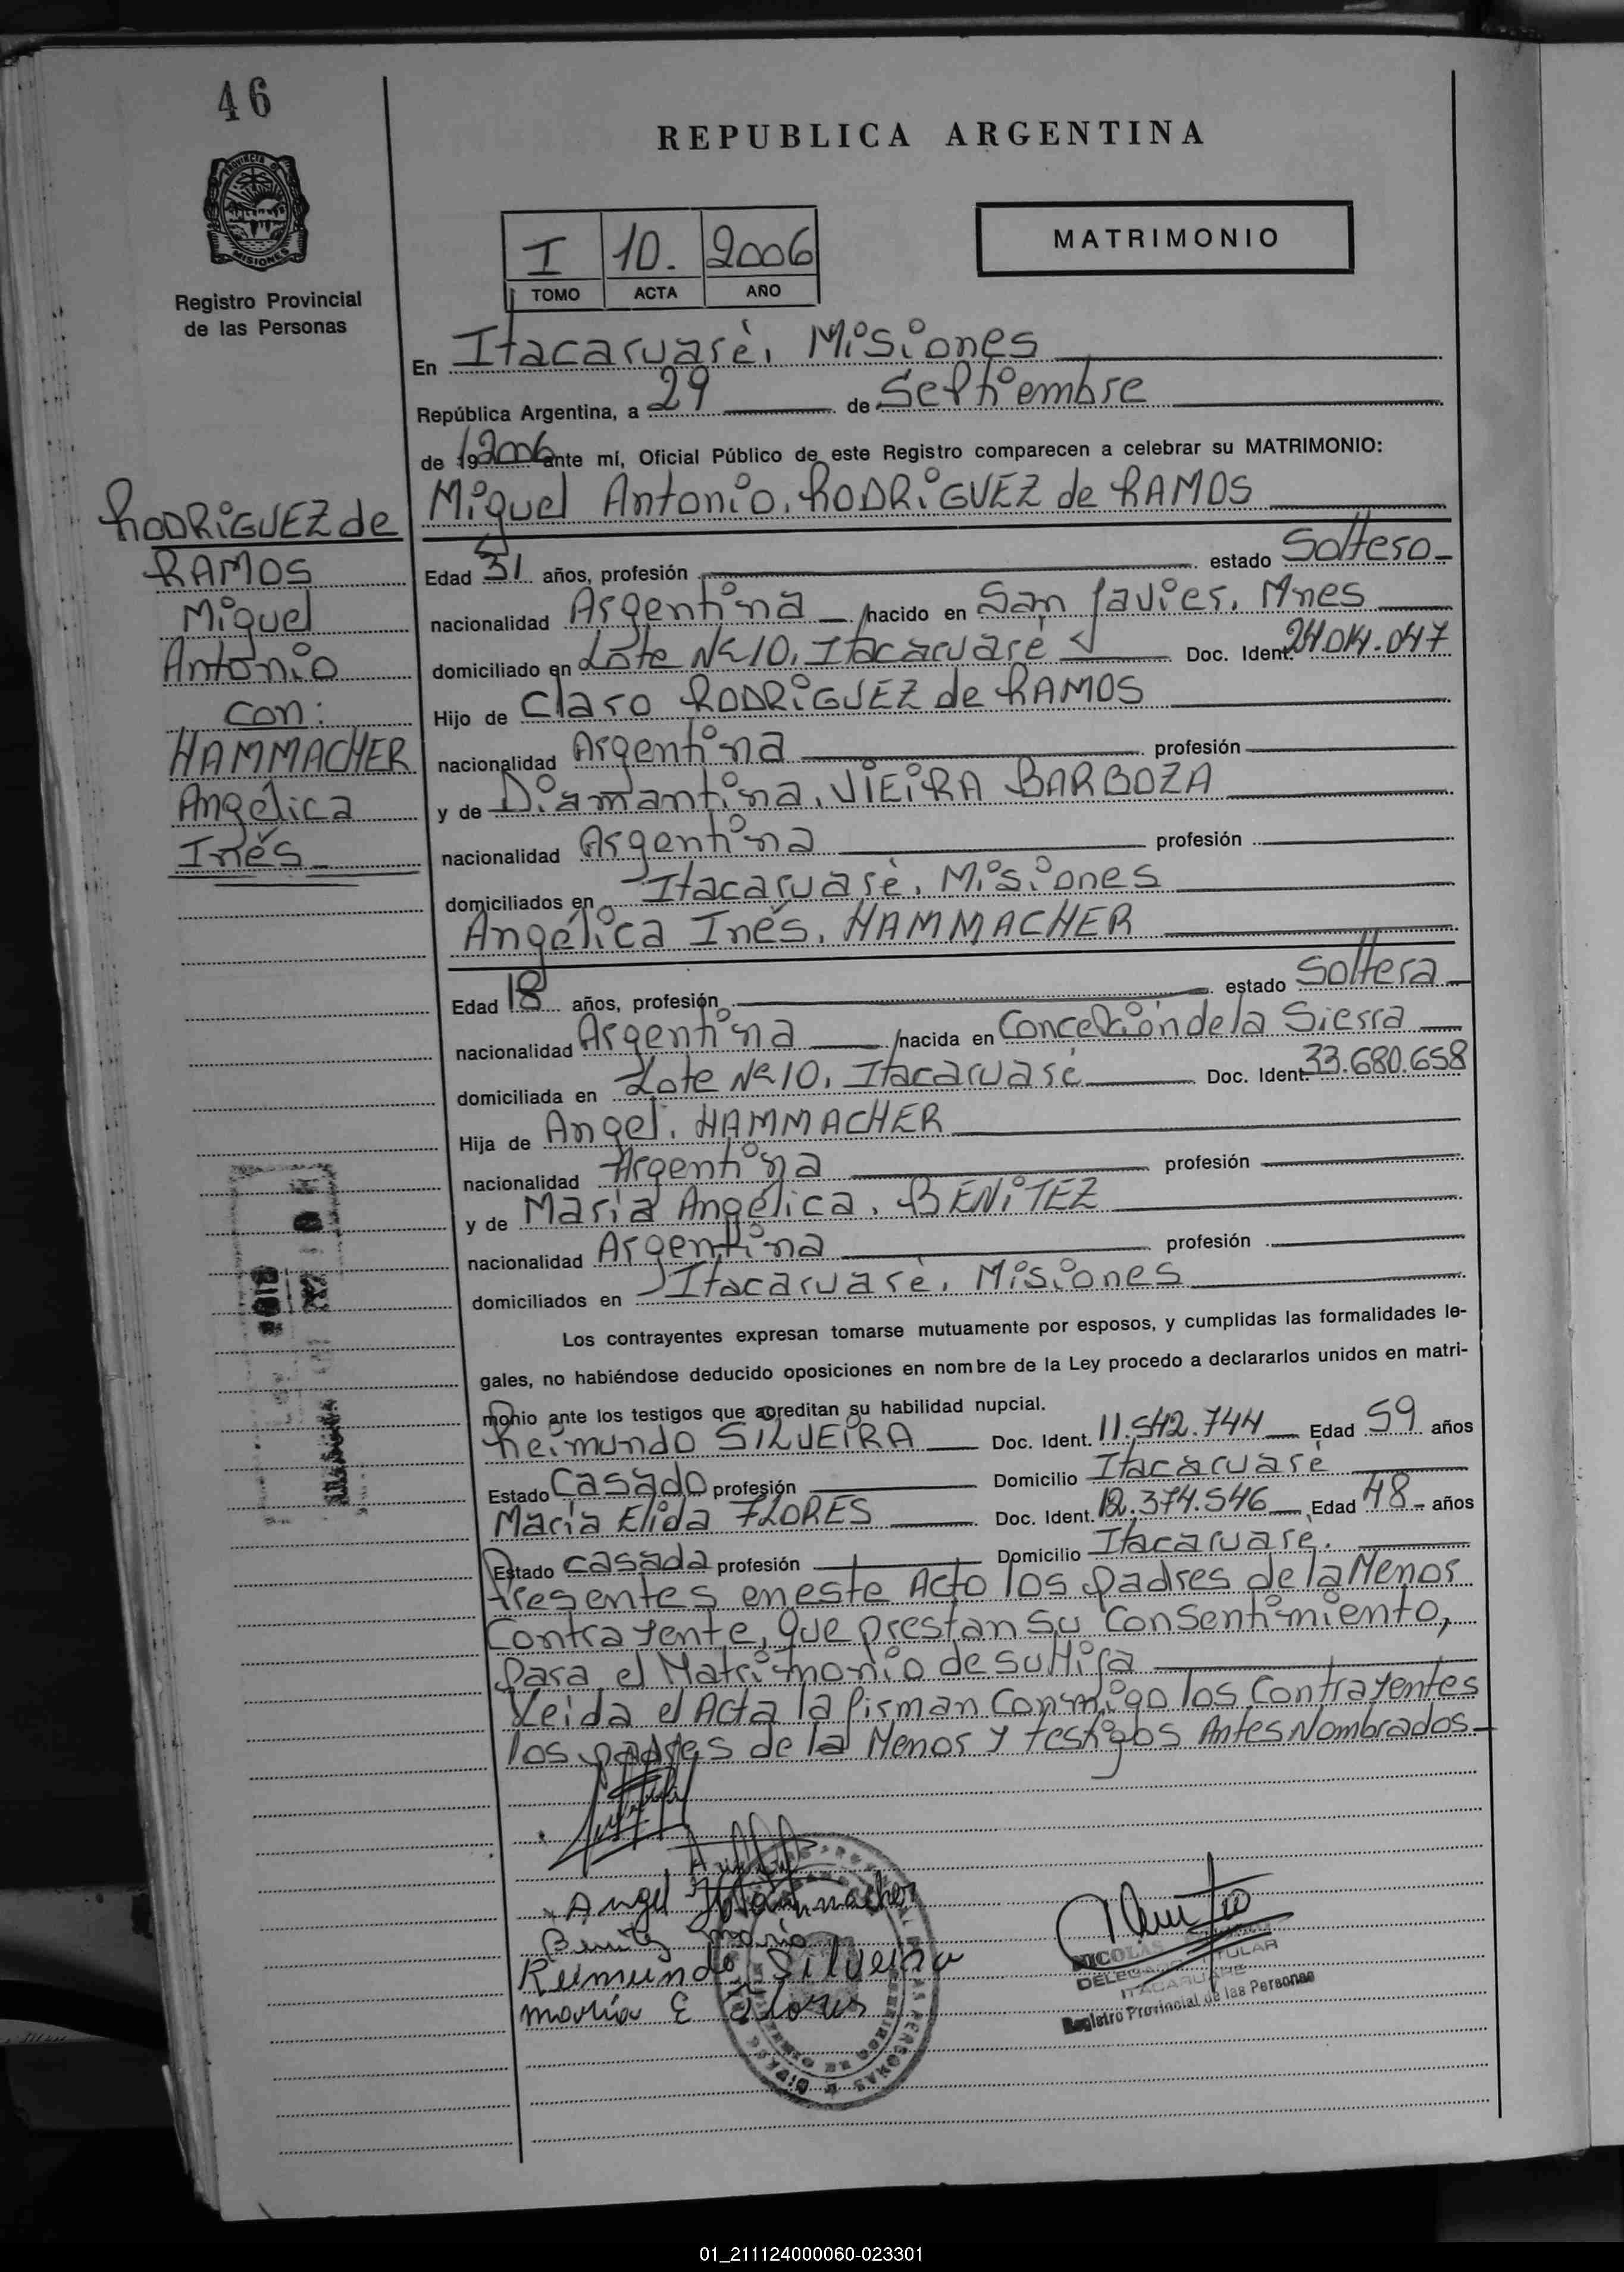 46
REPUBLICA ARGENTINA
PROVINCIA DE MISIONES
Registro Provincial
de las Personas
I 10. 2006
TOMO ACTA AÑO
MATRIMONIO
En Itacaruaré, Misiones
República Argentina, a 29 de Septiembre
de 192006 ante mí, Oficial Público de este Registro comparecen a celebrar su MATRIMONIO:
Miguel Antonio, RODRiGUEZ de RAMOS
RODRiGUEZ de
RAMOS
Miguel
Antonio
con:
HAMMACHER
Angélica
Inés
Edad 31 años, profesión estado Soltero
nacionalidad Argentina nacido en San Javier, Mnes
domiciliado en Lote Nº 10, Itacaruaré Doc. Ident. 24.014.047
Hijo de Claro RODRiGUEZ de RAMOS
nacionalidad Argentina profesión
y de Diamantina, VIEiRA BARBOZA
nacionalidad Argentina profesión
domiciliados en Itacaruaré, Misiones
Angélica Inés, HAMMACHER
Edad 18 años, profesión estado Soltera
nacionalidad Argentina nacida en Concepción de la Sierra
domiciliada en Lote Nº 10, Itacaruaré Doc. Ident. 33.680.658
Hija de Angel, HAMMACHER
nacionalidad Argentina profesión
y de María Angélica, BENiTEZ
nacionalidad Argentina profesión
domiciliados en Itacaruaré, Misiones
Los contrayentes expresan tomarse mutuamente por esposos, y cumplidas las formalidades le-
gales, no habiéndose deducido oposiciones en nombre de la Ley procedo a declararlos unidos en matri-
monio ante los testigos que acreditan su habilidad nupcial.
Reimundo SILVEiRA Doc. Ident. 11.542.744 Edad 59 años
Estado Casado profesión Domicilio Itacaruaré
María Elida FLORES Doc. Ident. 12.374.546 Edad 48 años
Estado casada profesión Domicilio Itacaruaré.
Presentes en este Acto los padres de la Menor
Contrayente, que prestan su Consentimiento,
para el Matrimonio de su Hija
Leida el Acta la firman Conmigo los Contrayentes
los padres de la Menor y testigos Antes Nombrados
Angel Hammacher
Benitez Maria
Reimundo Silveira
maria E Flores
NICOLAS
DELEGADO TITULAR
ITACARUARE
Registro Provincial de las Personas
01_211124000060-023301